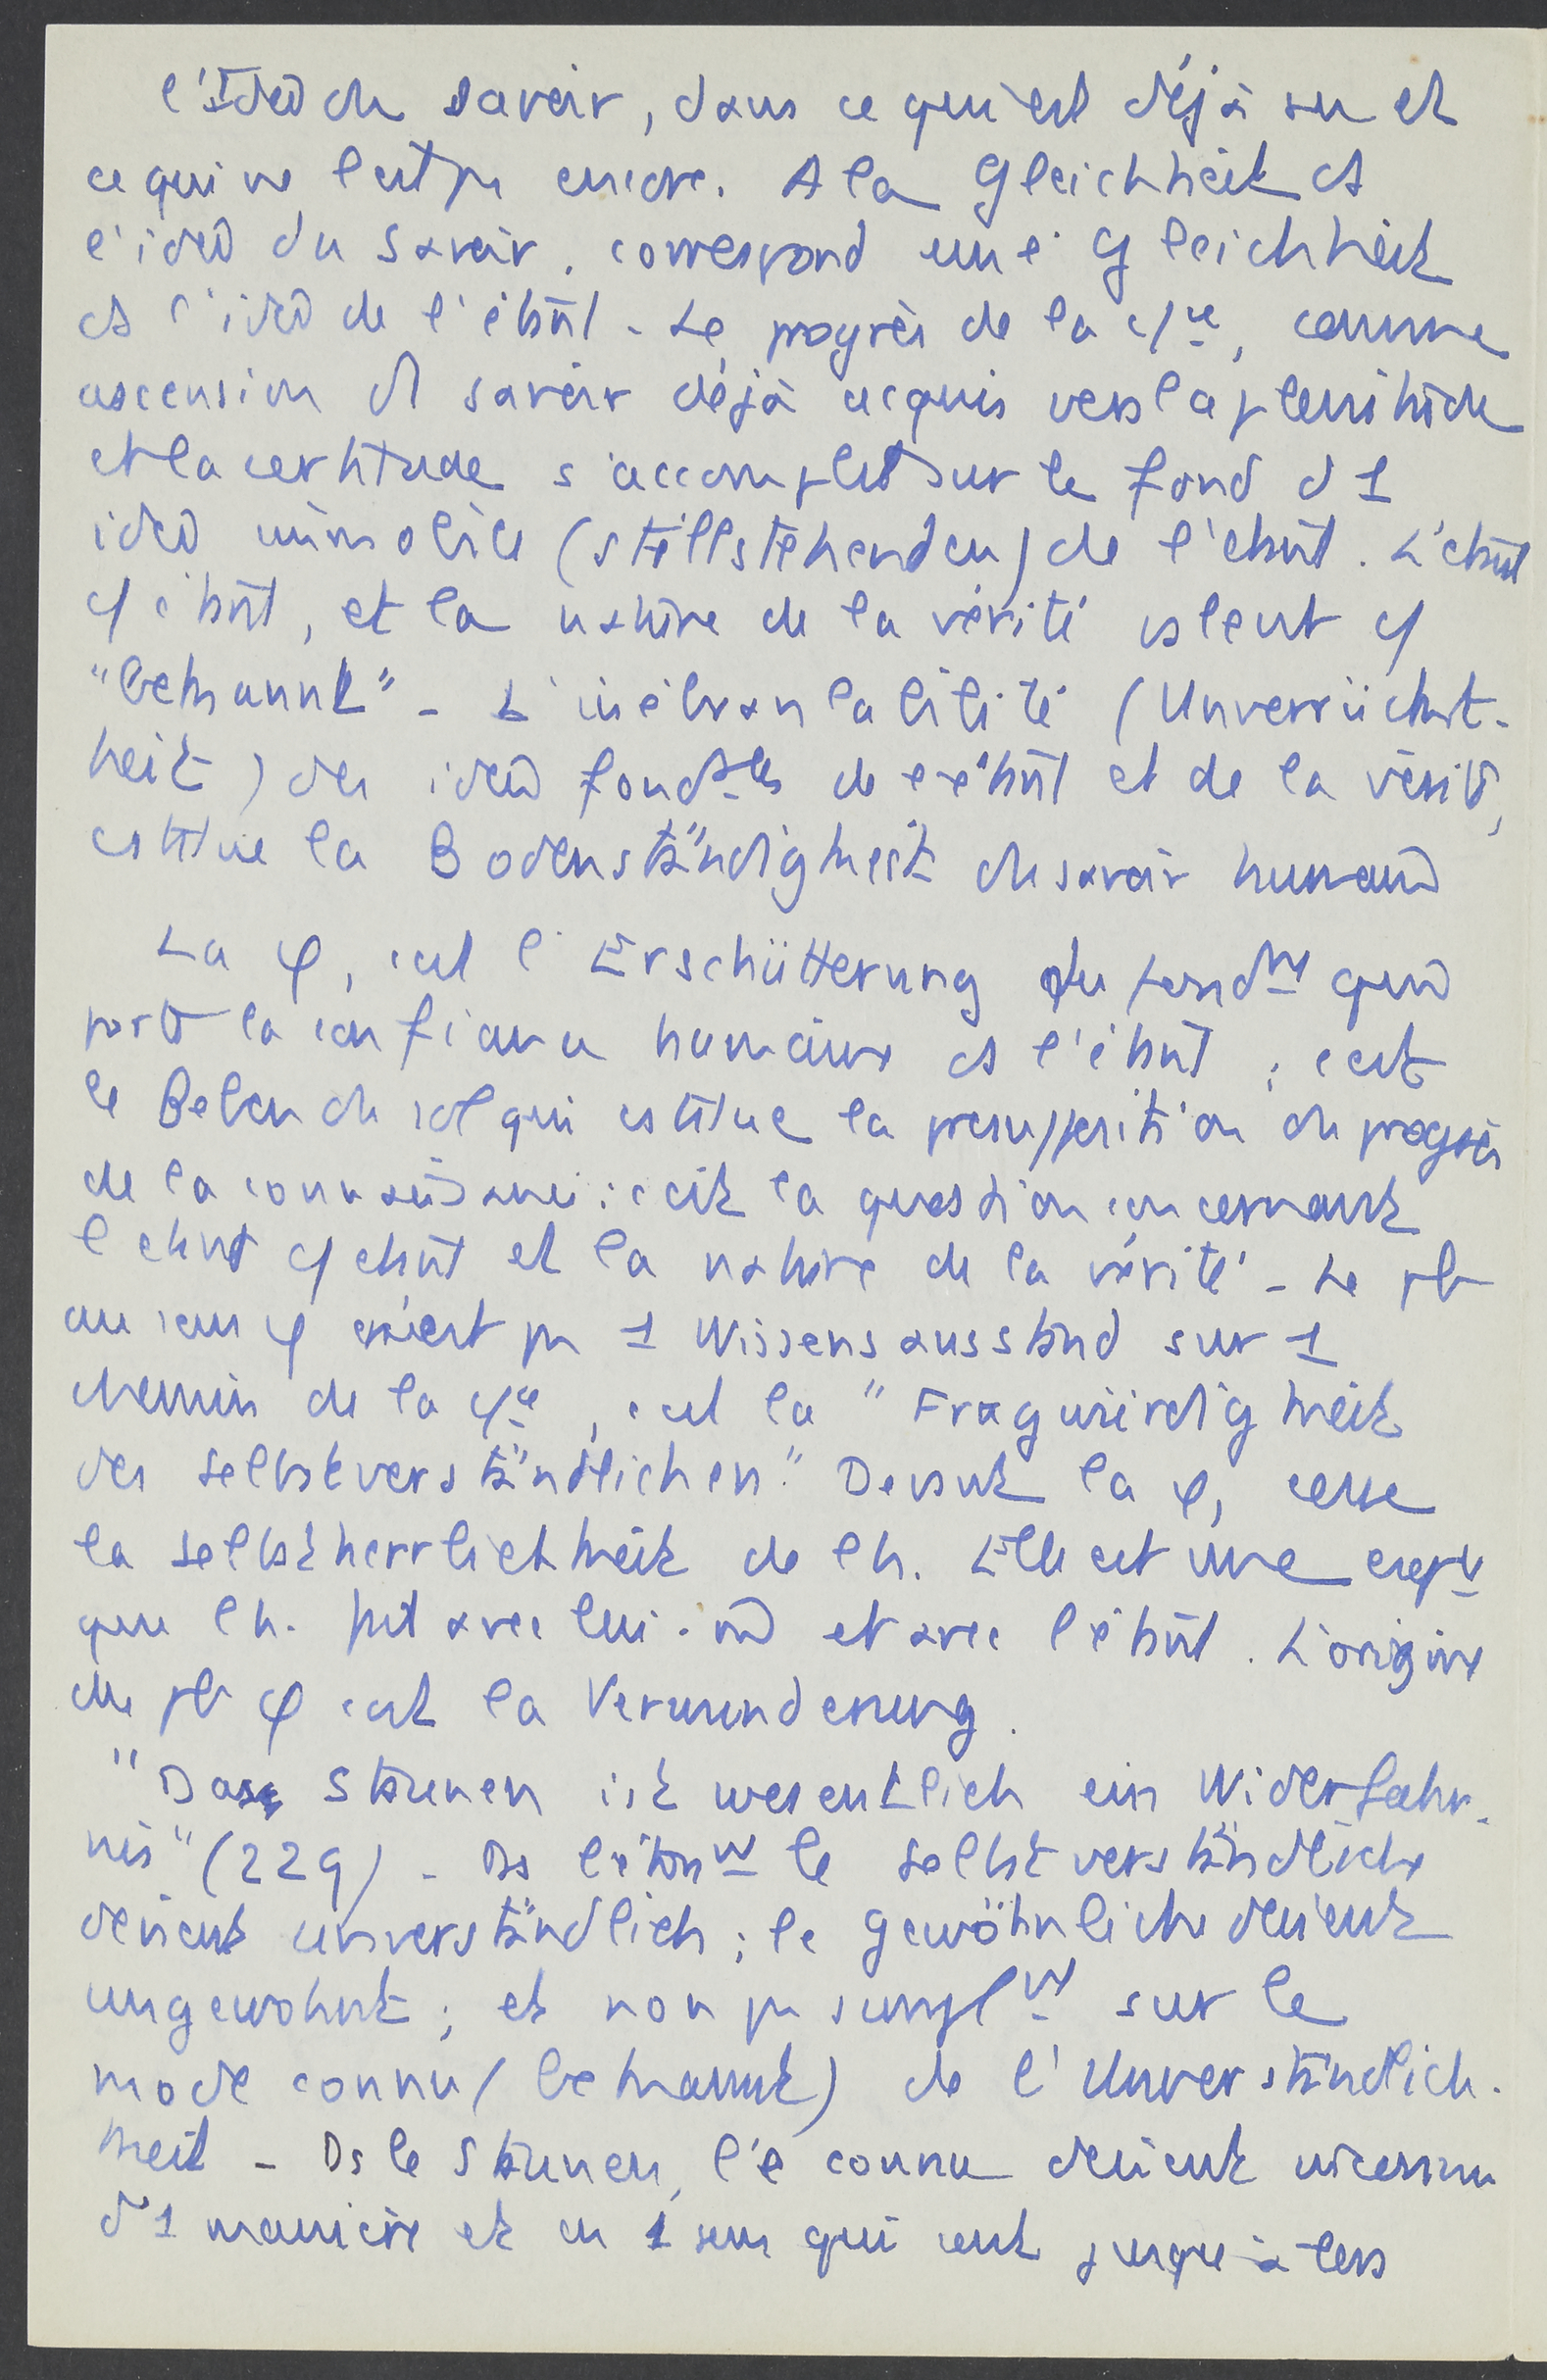 l'idée du savoir, dans ce qui est déjà su et
ce qui ne l'est pas encore. A la Gleichheit ds
l'idée du savoir, correspond une Gleichheit
ds l'idée de l'étant. Le progrès de la c/ce, comme
ascension du savoir déjà acquis vers la plénitude
et la certitude s'accomplit sur le fond d1
idée immobile (stillstehenden) de l'étant. L'étant
c/ étant, et la nature de la vérité valent c/
"bekannt" - L'inébranlabilité (Unverrückt-
heit) des idées fondtales de l'étant et de la vérité,
cstitue la Bodenständigkeit du savoir humain
La φ, c'est l'Erschütterung du fondnt que
porte la confiance humaine ds l'étant ; c'est
le Beben du sol qui cstitue la presupposition du progrès
de la connaissance : c'est la question concernant
l'étant c/ étant et la nature de la vérité - Le pb
au sens φ n'est pas 1 Wissensausstand sur 1
chemin de la c/ce, c'est la "Fragwürdigkeit
des Selbstverständlichen." Devant la φ, cesse
la Selbstherrlichkeit de l'h. Elle est une
que l'h. fait avec lui-mê et avec l'étant. L'origine
du pb φ c'est la Verwunderung.
"Das Staunen ist wesentlich ein Widerfahr-
nis" (229) - Ds l'étonnt le Selbstverständliche
devient unverständlich ; le Gewöhnliche devient
ungewohnt ; et non pas simplnt sur le
mode connu (bekannt) de l'Unverständlich-
keit - Ds le Staunen, l'é connu devient inconnu
d'1 manière et en 1 sens qui sont jusque-là